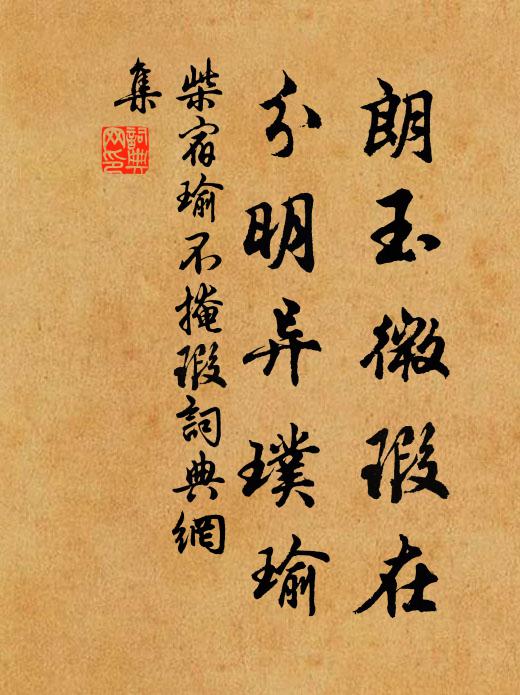 朗玉微瑕在
分明异璞瑜
柴宿瑜不掩瑕詞典網
集
詞典網印